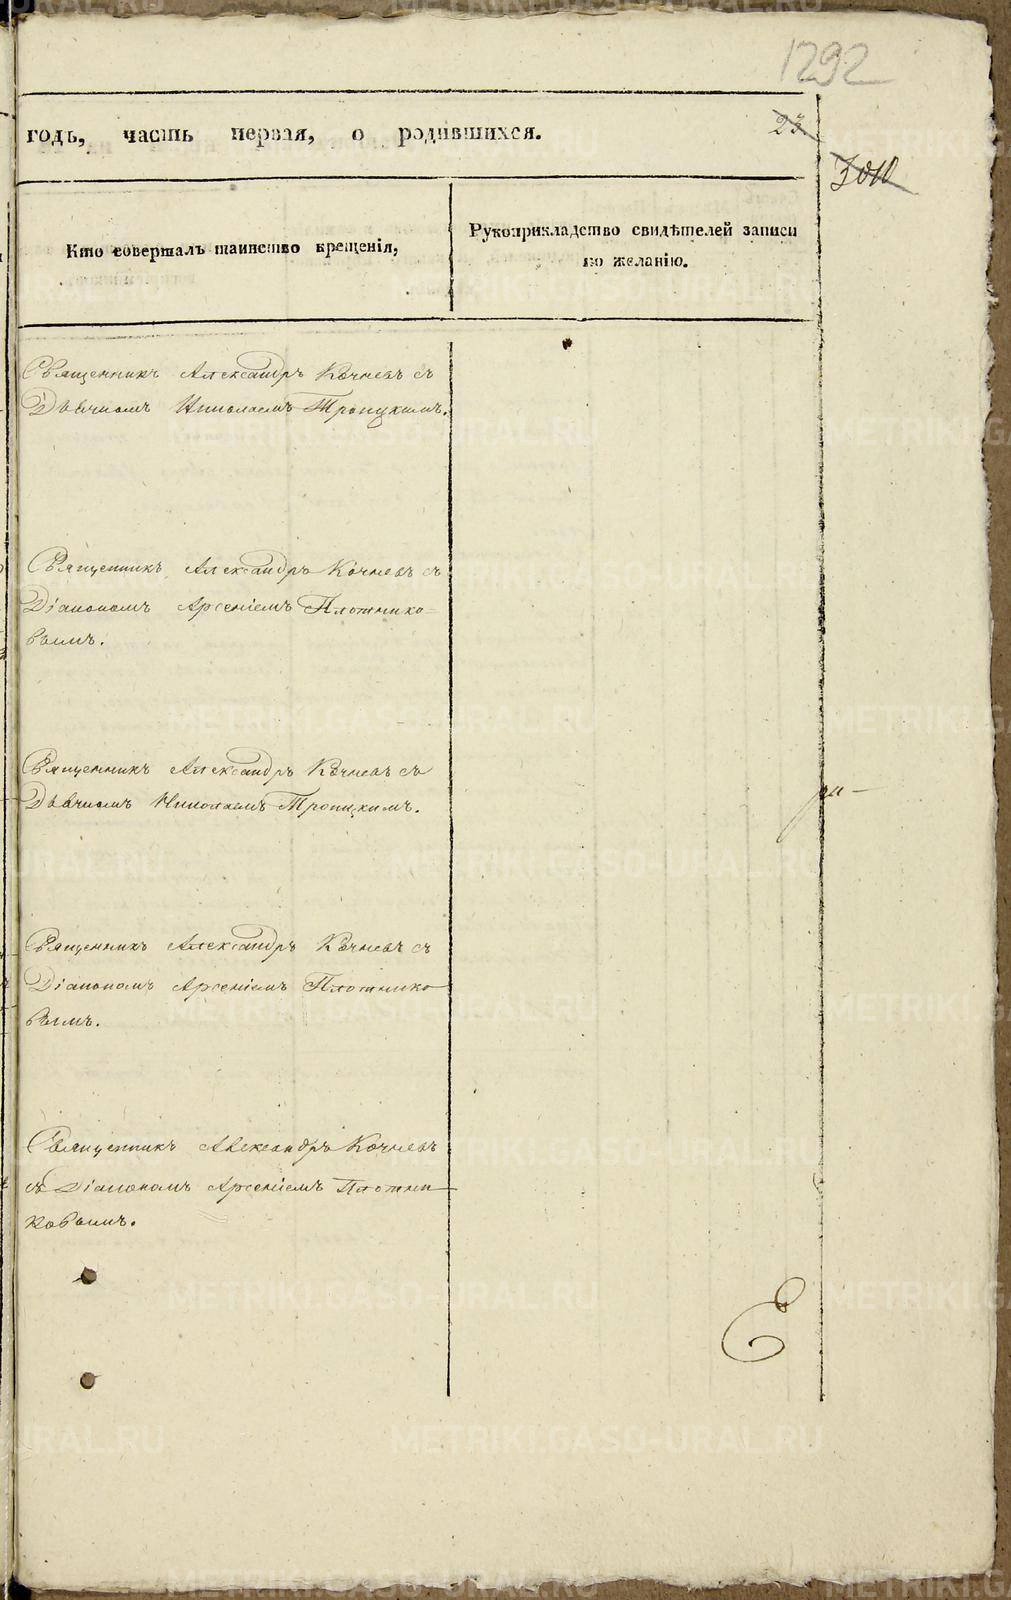 1292
годъ, часть первая, о родившихся.
23
3010
Кто совершалъ таинство крещенія,
Рукоприкладство свидѣтелей записи
по желанію.
Священникъ Александръ Кочневъ съ
Дьячкомъ Николаемъ Троицкимъ.
Священникъ Александръ Кочневъ съ
Діакономъ Арсеніемъ Плотнико-
вымъ.
Священникъ Александръ Кочневъ съ
Дьячкомъ Николаемъ Троицкимъ.
ри-
Священникъ Александръ Кочневъ съ
Діакономъ Арсеніемъ Плотнико-
вымъ.
Священникъ Александръ Кочневъ
съ Діакономъ Арсеніемъ Плотни-
ковымъ.
METRIKI.GASO-URAL.RU